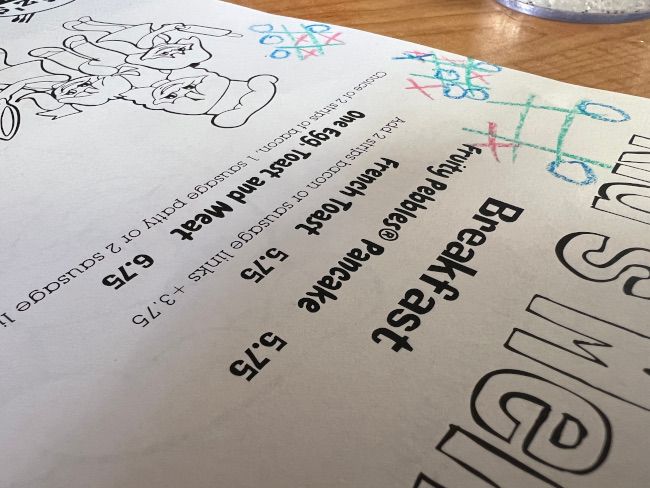 Kid's Men
Breakfast
Fruity Pebbles® Pancake 5.75
French Toast 5.75
Add 2 strips bacon or sausage links +3.75
One Egg, Toast and Meat 6.75
Choice of 2 strips of bacon, 1 sausage patty or 2 sausage li